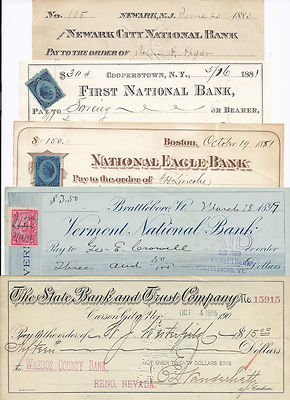 No. 105 NEWARK, N.J. June 23 1883
NEWARK CITY NATIONAL BANK
PAY TO THE ORDER OF
$30 COOPERSTOWN, N.Y., 5/26 1881
FIRST NATIONAL BANK,
PAY TO OR BEARER,
$150. Boston, October 19 1881
NATIONAL EAGLE BANK
Pay to the order of Lincoln
$3.50 Brattleboro, Vt March 18 18
Vermont National Bank
Pay to Geo. E. Crowell or order
Three and 50 Dollars
PAID
BRATTLEBORO, VT.
The State Bank and Trust Company No 15915
Carson City, Nev. OCT 4 1905 190
Pay to the order of $15.00
Fifteen Dollars
WASHOE COUNTY BANK,
RENO, NEVADA.
NOT OVER TWENTY DOLLARS $20$